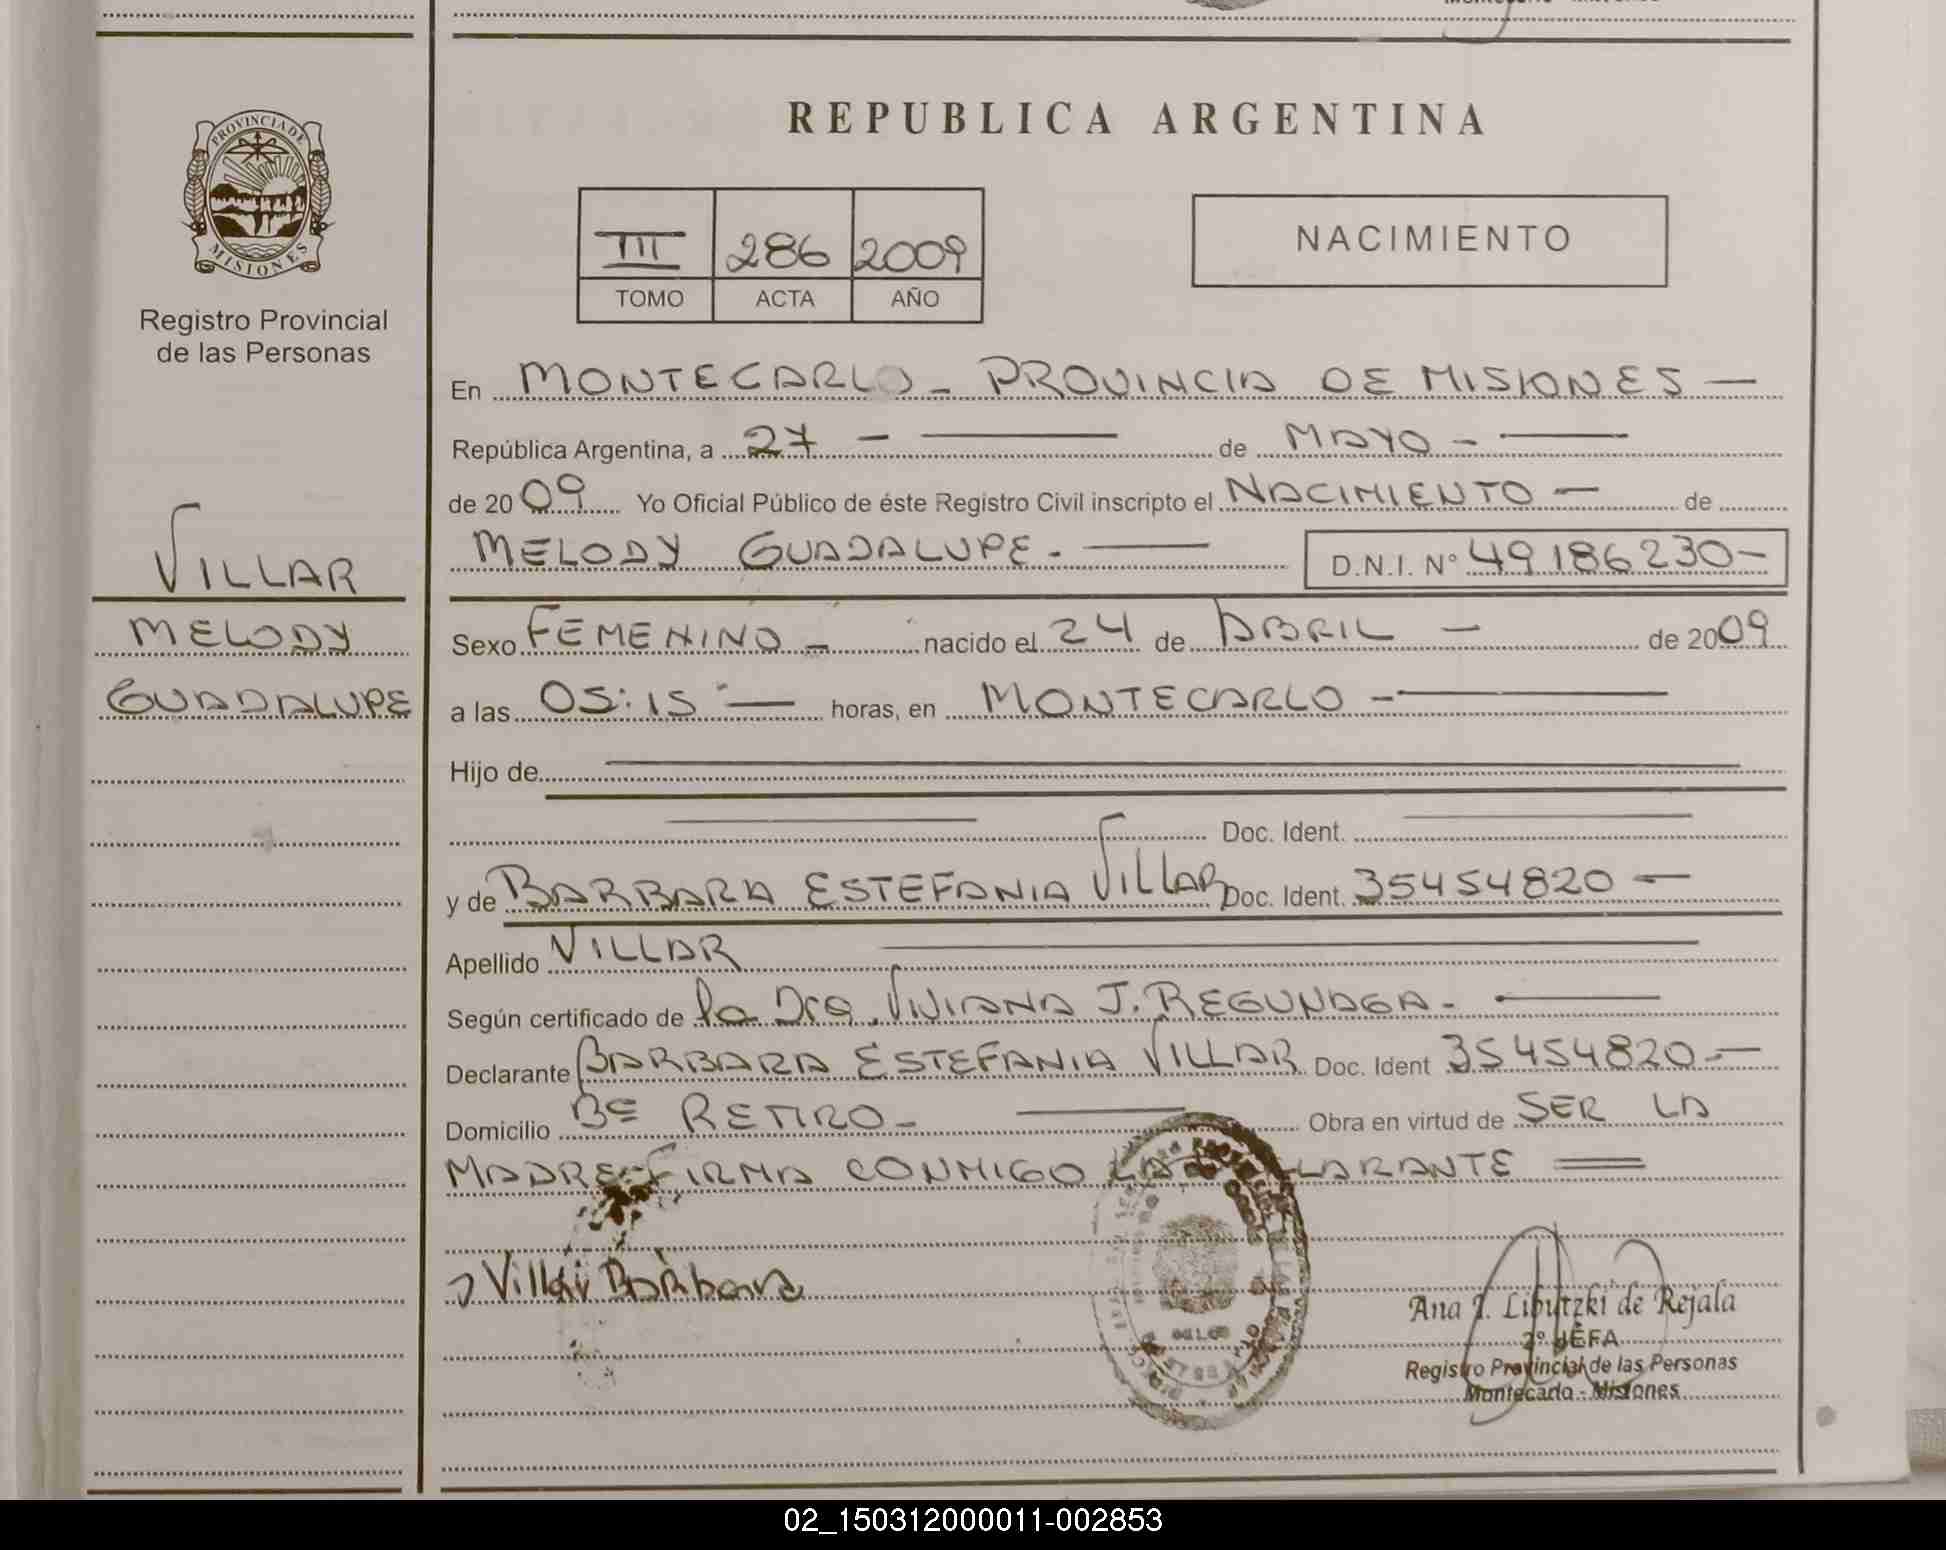 REPUBLICA ARGENTINA
PROVINCIA DE
MISIONES
Registro Provincial
de las Personas
III 286 2009
TOMO ACTA AÑO
NACIMIENTO
En MONTECARLO - PROVINCIA DE MISIONES —
República Argentina, a 27 - — de MAYO - —
de 2009 Yo Oficial Público de éste Registro Civil inscripto el NACIMIENTO — de
MELODY GUADALUPE. — D.N.I. N° 49186230-
VILLAR
MELODY
GUADALUPE
Sexo FEMENINO - nacido el 24 de ABRIL - de 2009
a las 05:15 — horas, en MONTECARLO - —
Hijo de —
— Doc. Ident. —
y de BARBARA ESTEFANIA VILLAR Doc. Ident. 35454820 —
Apellido VILLAR —
Según certificado de la Dra. VIVIANA J. REGUNAGA. —
Declarante BARBARA ESTEFANIA VILLAR Doc. Ident 35454820.—
Domicilio Bº RETIRO - — Obra en virtud de SER LA
MADRE FIRMA CONMIGO LA DECLARANTE =
Villar Bárbara
Ana I. Libutzki de Rejala
2º JEFA
Registro Provincial de las Personas
Montecarlo - Misiones
02_150312000011-002853